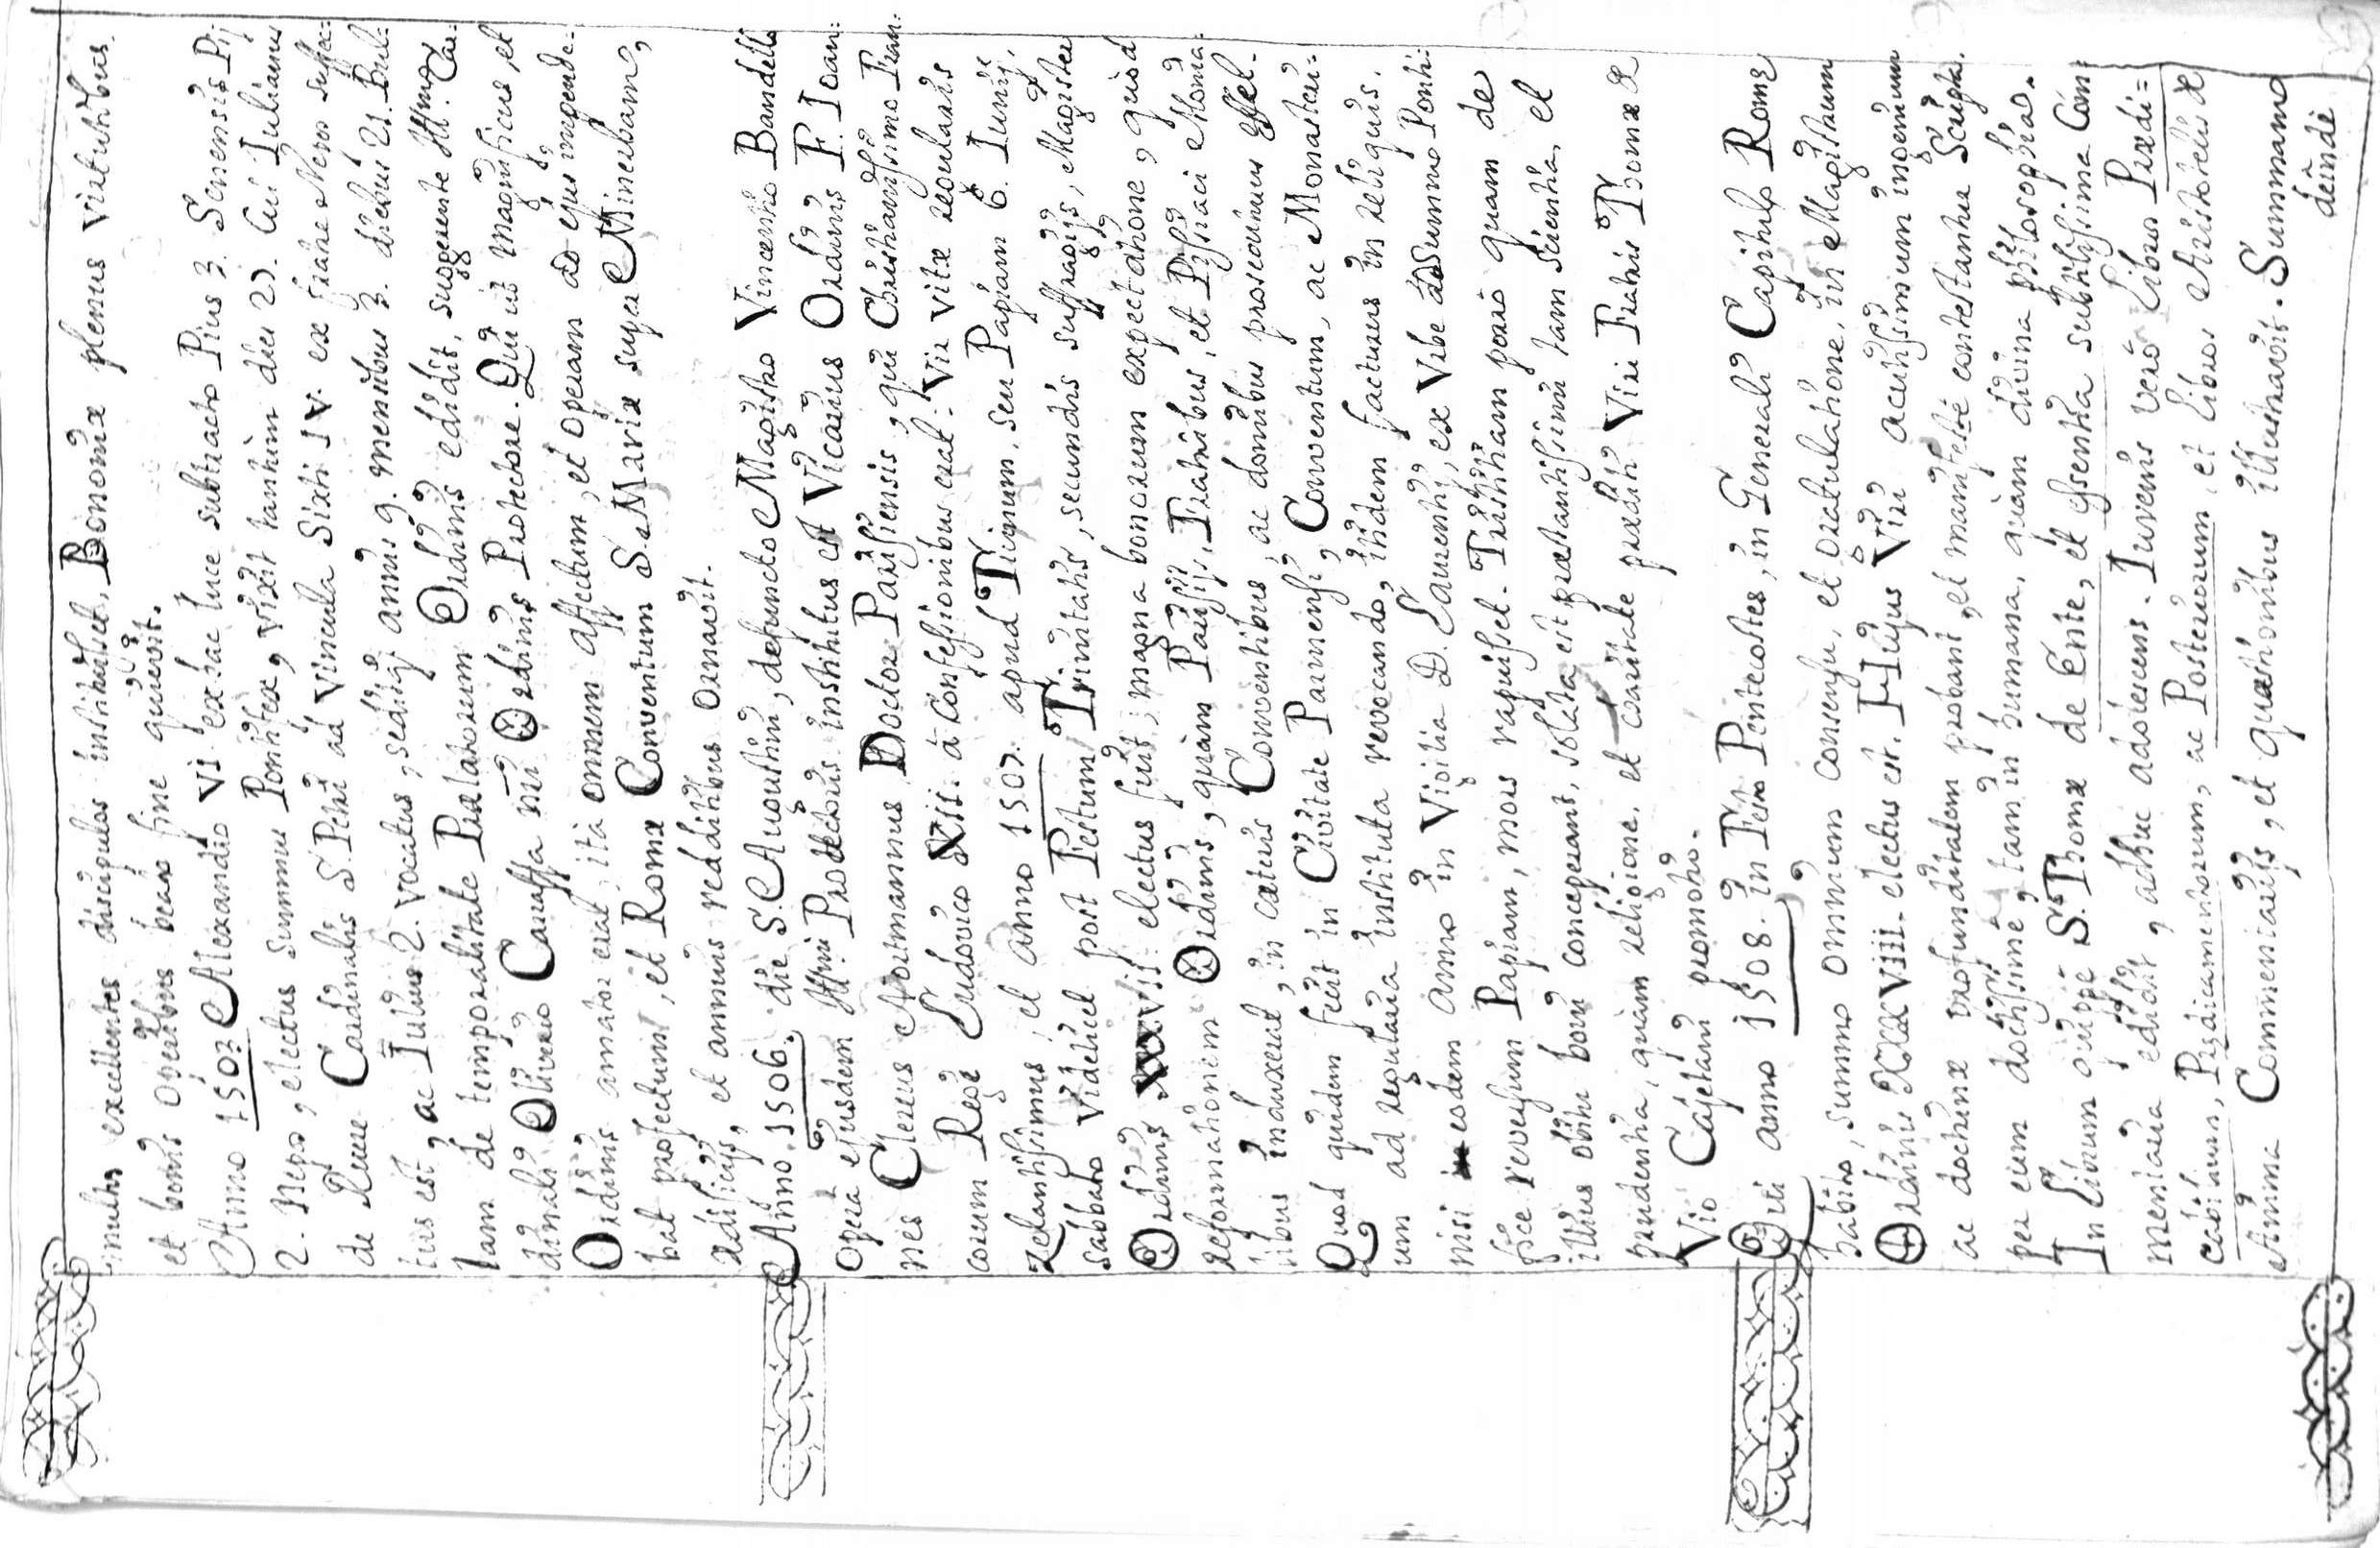 multos excellentes discipulos instituisset, Bononiæ plenus virtutibus,
et bonis operibus beato fine quievit.
Anno 1503 Alexandro VI ex hac luce subtracto Pius 3. Senensis Pij
2. Nepos, electus summus Pontifex, vixit tantùm dies 27. Cui Iulianus
de Ruere Cardinalis S. Petri ad Vincula Sixti IV. ex fratre Nepos suffec=
tus est, ac Iulius 2. vocatus, seditq; annis 9. mensibus 3. diebus 21. Bul=
lam de temporalitate Prælatorum Ordinis edidit, suggerente Illmo Car=
dinali Oliverio Caraffa nri Ordinis Protectore. Qui ut magnificus, et
Ordinis amator erat, ità omnem affectum, et operam ad ejus impende=
bat profectum, et Romæ Conventum S. Mariæ supra Minerbam,
ædificijs, et annuis redditibus ornavit.
Anno 1506. die S. Augustini, defuncto Magistro Vincentio Bandelli
opera ejusdem Illmi Protectoris institutus est Vicarius Ordinis F. Ioan=
nes Clereus Normannus Doctor Parisiensis, qui Christianissimo Fran=
corum Regi Ludovico XII. à confessionibus erat: Vir vitæ regularis
zelantissimus, et anno 1507. apud Ticinum, seu Papiam 6. Iunij,
sabbato videlicet post Festum Trinitatis, secundis suffragijs, Magister
Ordinis XXXVII. electus fuit; magna bonorum expectatione, quòd
reformationem Ordinis, quàm Parisijs, Fratribus, et Pissiaci Monia=
libus induxerat, in cæteris Conventibus, ac domibus prosequturus esset.
Quod quidem fecit in Civitate Parmensi, Conventum, ac Monasteri=
um ad regularia instituta revocando, itidem facturus in reliquis.
nisi eodem anno in Vigilia D. Laurentij, ex Vrbe à Summo Ponti=
fice reversum Papiam, mors rapuisset. Tristitiam porrò quam de
illius obitu boni conceperant, solata est præstantissimi tam scientia, et
prudentia, quàm religione, et charitate præditi Viri Fratris Thomæ de
Vio Cajetani promotio.
Qui anno 1508. in Festo Pentecostes, in Generali Capitulo Romæ
habito, summo omnium consensu, et gratulatione, in Magistrum
Ordinis XXXVIII. electus est. Hujus Viri acutissimum ingenium
ac doctrinæ profunditatem probant, et manifestè contestantur Scripta.
per eum doctissimè, tam in humana, quàm divina philosophia.
In Librum quippe S. Thomæ de Ente, et essentia subtilissima Com=
mentaria edidit, adhuc adolescens. Iuvenis verò Libros Prædi=
cabilium, Prædicamentorum, ac Posteriorum, et Libros Aristotelis de
Anima Commentarijs, et quæstionibus illustravit. Summam
deinde